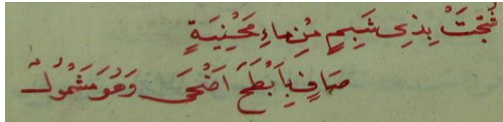 شُجَّتْ بِذِى شَبِمٍ مِنْ مَاءِ مَحْنِيَةٍ
صَافٍ بِاَبْطَحَ اَضْحَى وَهُوَ مَشْمُولُ